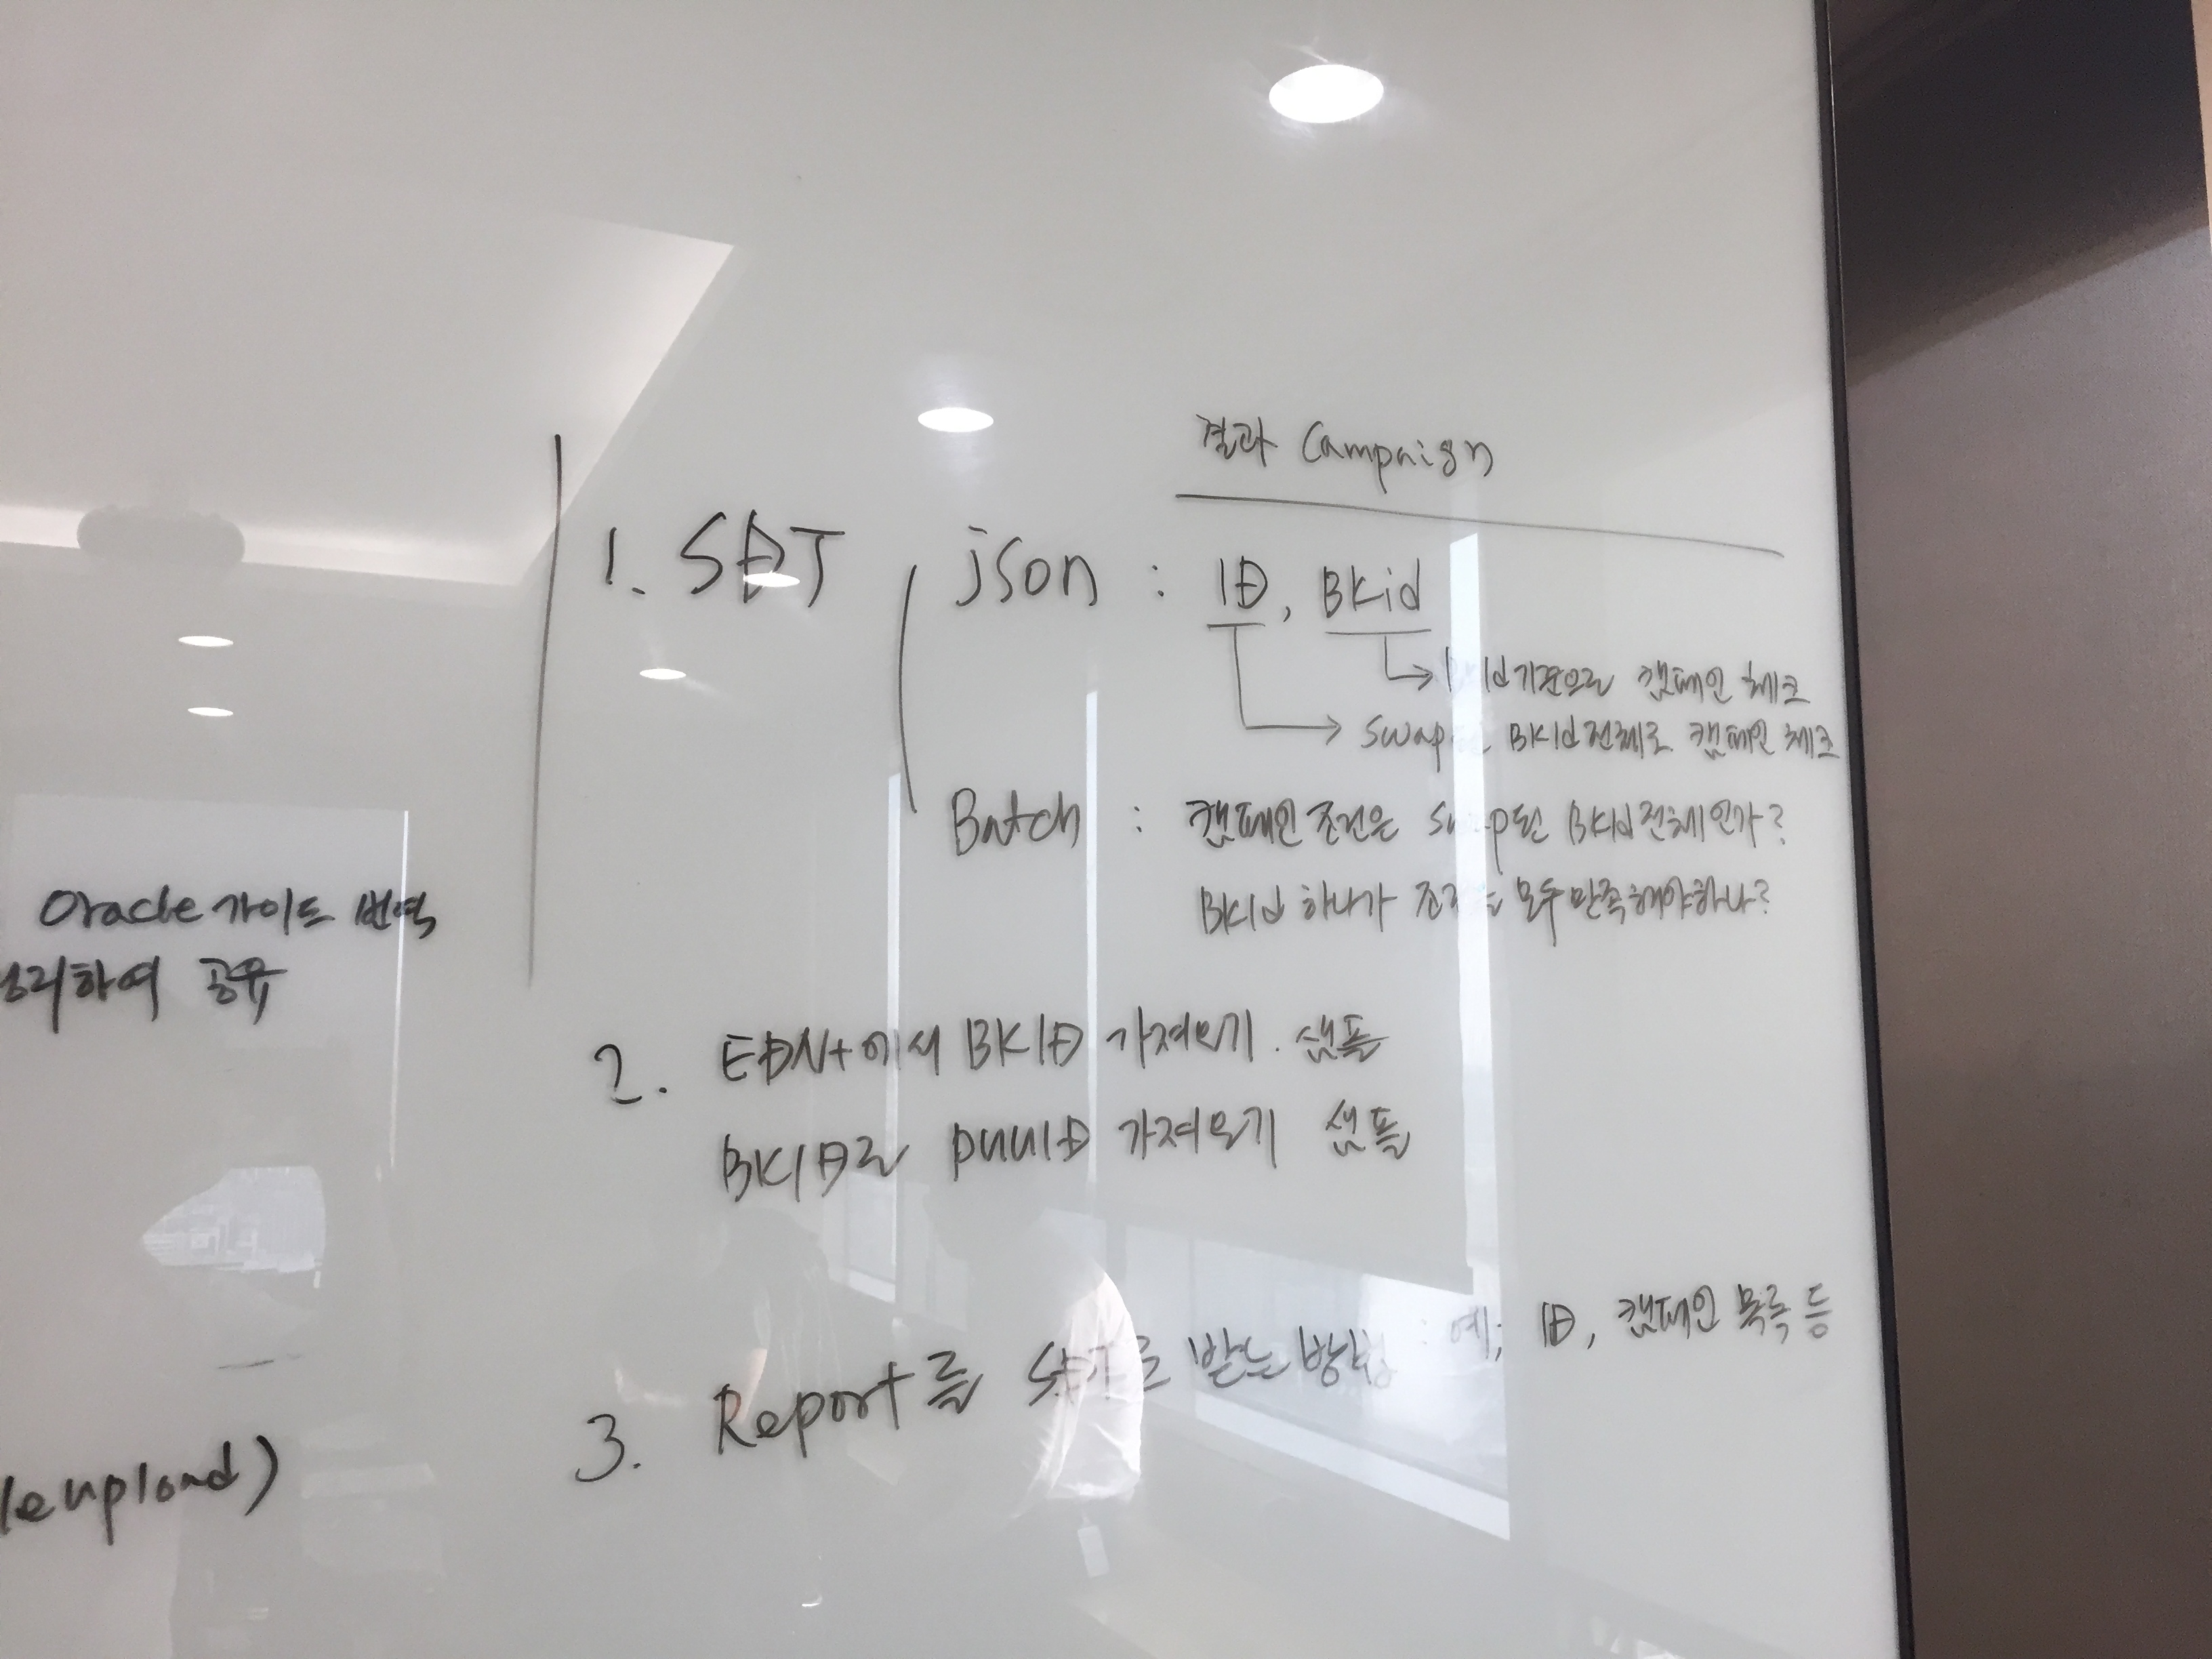 결과 Campaign
1. SDT json : ID, BKid
BKId기준으로 캠페인 체크
Swap된 BKId전체로 캠페인 체크
Batch : 캠페인 조건은 Swap된 BKId전체인가?
BKId 하나가 조건을 모두 만족해야하나?
Oracle 가이드 번역
정리하여 공유
2. EDN+에서 BKID 가져오기. 샘플
BKID로 puuID 가져오기 샘플
3. Report를 SDT로 받는 방법 : 예; ID, 캠페인 목록 등
le upload)